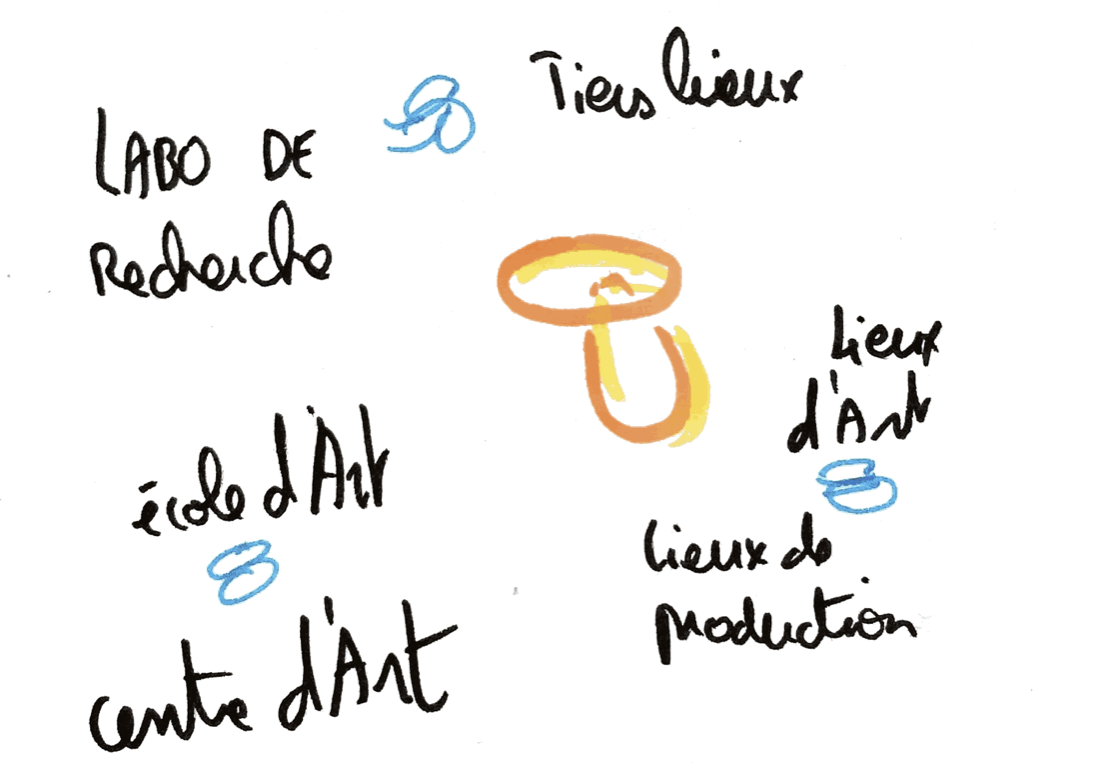 Tiers lieux
LABO DE
Recherche
Lieux
d'Art
école d'Art
Lieux de
production
centre d'Art